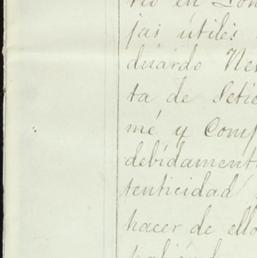 rio en Lon
jas utiles
duardo Ne
ta de Setie
mé y Comp
debidament
tenticidad
hacer de ello